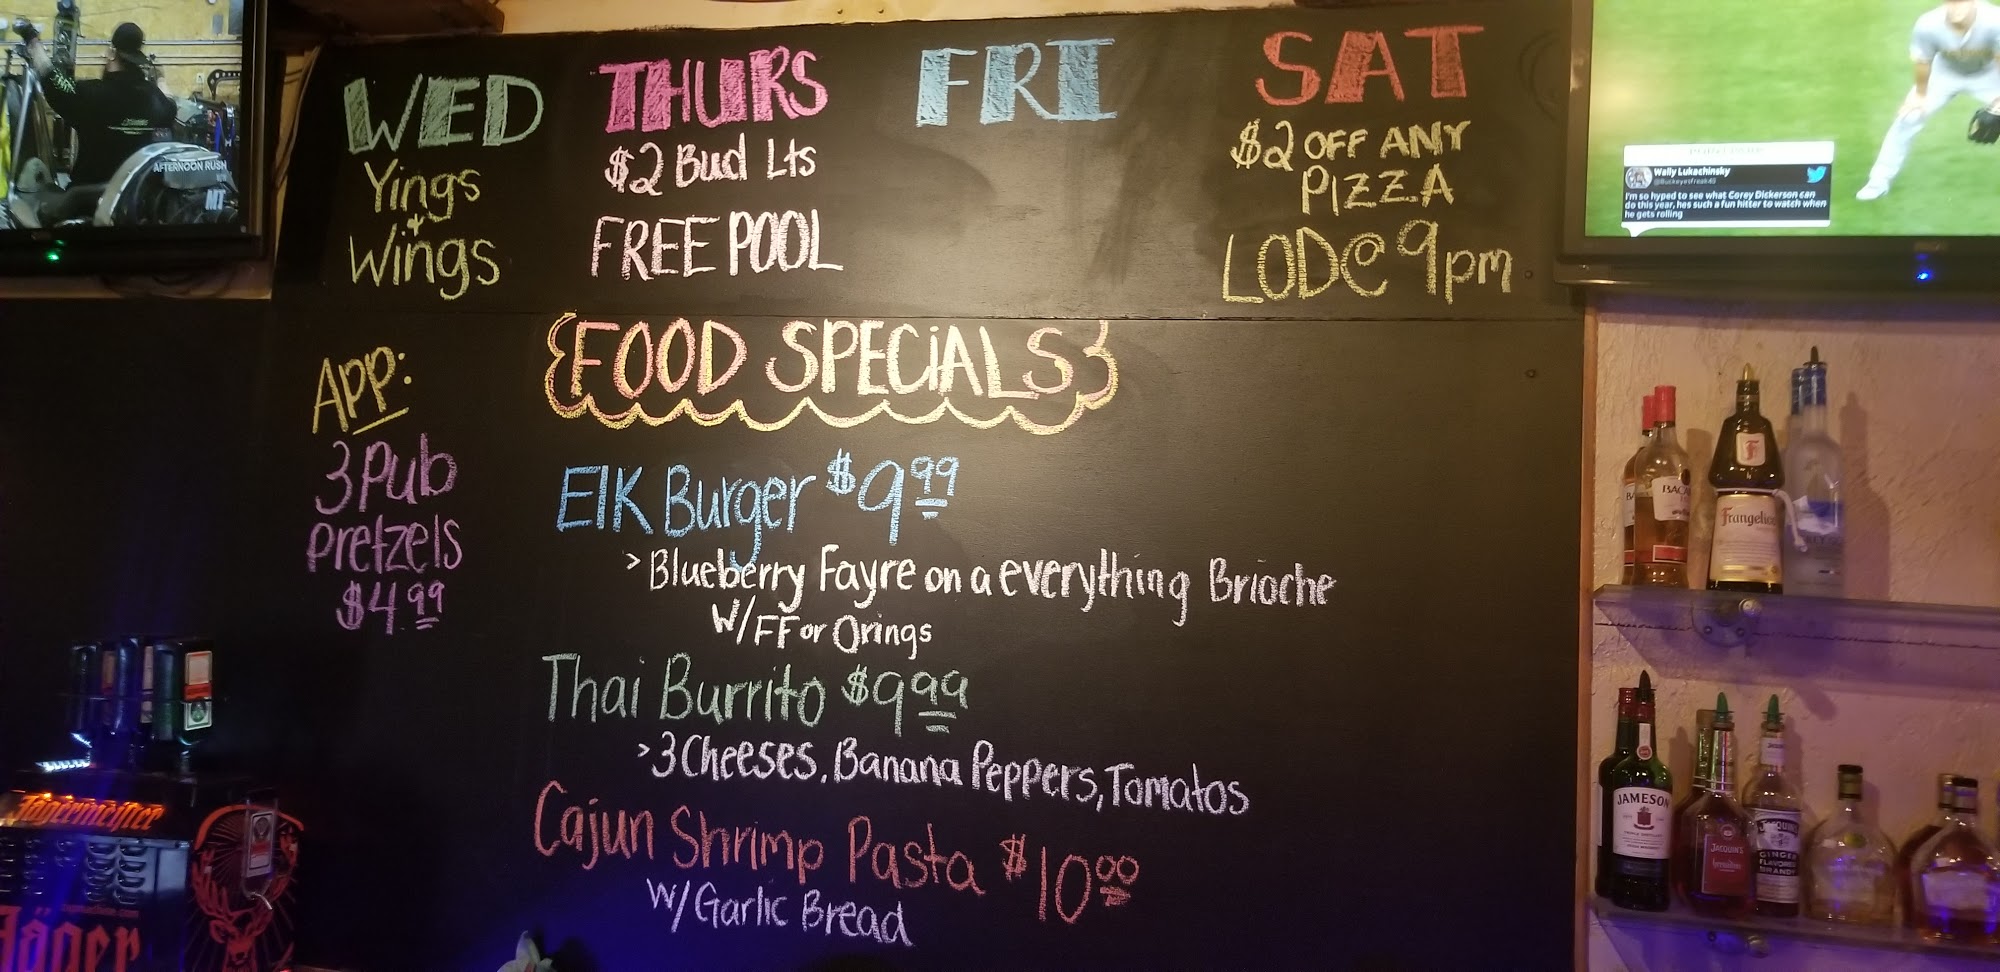 WED
Yings
+
Wings
THURS
$2 Bud Lts
FREE POOL
FRI
SAT
$2 OFF ANY
PIZZA
LODE 9pm
FOOD SPECIALS
App:
3 Pub
pretzels
$4.99
Elk Burger $9.99
>Blueberry Fayre on a everything Brioche
w/FF or Orings
Thai Burrito $9.99
>3 Cheeses, Banana Peppers, Tomatos
Cajun Shrimp Pasta $10.00
w/Garlic Bread
AFTERNOON RUSH
MT
Wally Lukachinsky
I'm so hyped to see what Corey Dickerson can
do this year, hes such a fun hitter to watch when
he gets rolling
Frangelico
JAMESON
JACQUIN'S
GINGER
FLAVORED
BRANDY
Jägermeister
Jäger